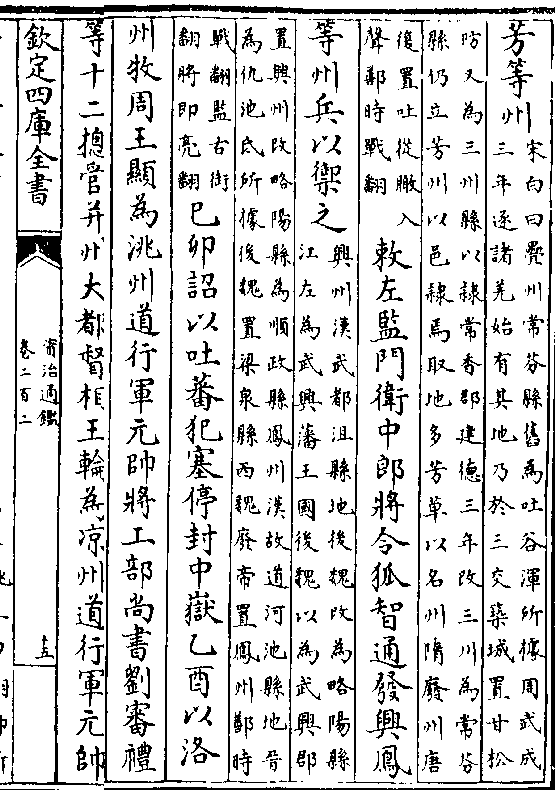 芳等州
宋白曰疊州常芬縣舊為吐谷渾所據周武成
三年逐諸羌始有其地乃於三交築城置甘松
防又為三州縣以隸常香郡建德三年改三川為常芬
縣仍立芳州以邑隸焉取地多芳草以名州隋廢州唐
後置吐從暾入
聲鄯時戰翻
敕左監門衛中郎將令狐智通發興鳳
等州兵以禦之
興州漢武都沮縣地後魏改為略陽縣
江左為武興藩王國後魏以為武興郡
置興州改略陽縣為順政縣鳳州漢故道河池縣地晉
為仇池氐所據後魏置梁泉縣西魏廢帝置鳳州鄯時
戰翻監右銜
翻將即亮翻
己卯詔以吐蕃犯塞停封中嶽乙酉以洛
州牧周王顯為洮州道行軍元帥將工部尚書劉審禮
等十二摠管并州大都督相王輪為涼州道行軍元帥
欽定四庫全書
資治通鑑
卷二百二
十五